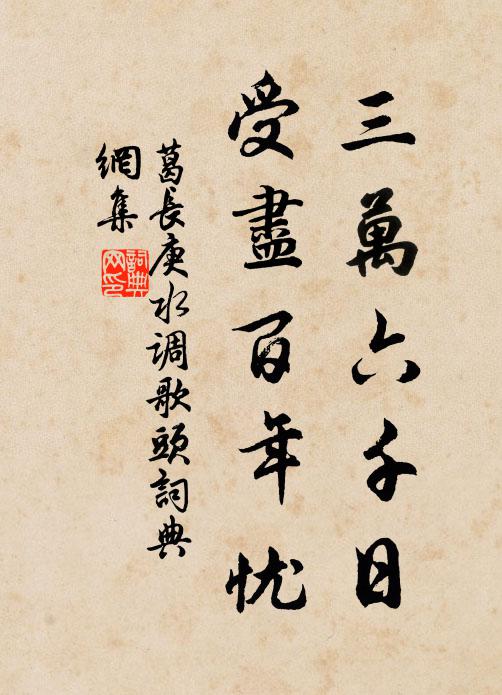 三萬六千日
受盡百年忧
葛長庚水调歌頭詞典
網集
詞典网印